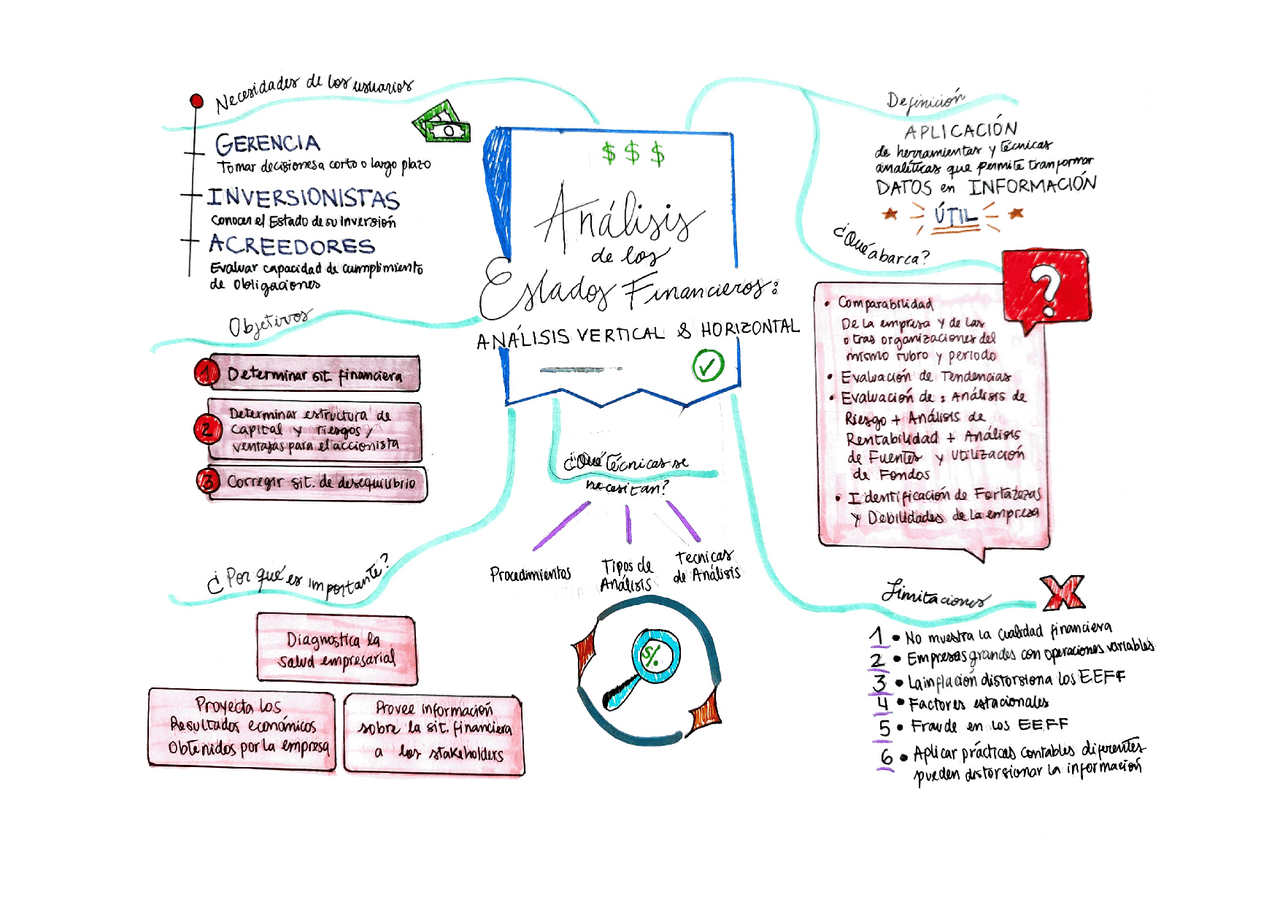 $ $ $
Análisis
de los
Estados Financieros:
ANÁLISIS VERTICAL & HORIZONTAL
Necesidades de los usuarios
GERENCIA
Tomar decisiones a corto o largo plazo
INVERSIONISTAS
Conocer el Estado de su Inversión
ACREEDORES
Evaluar capacidad de cumplimiento
de Obligaciones
Objetivos
1 Determinar sit. financiera
2 Determinar estructura de
Capital y riesgos /
ventajas para el accionista
3 Corregir sit. de desequilibrio
¿Por qué es importante?
Diagnostica la
salud empresarial
Proyecta los
Resultados económicos
Obtenidos por la empresa
Provee información
sobre la sit. financiera
a los stakeholders
¿Qué técnicas se
necesitan?
Procedimientos
Tipos de
Análisis
Tecnicas
de Análisis
S/.
Definición
APLICACIÓN
de herramientas y técnicas
analíticas que permite tranformar
DATOS en INFORMACIÓN
ÚTIL
¿Qué abarca?
?
• Comparabilidad
De la empresa y de las
otras organizaciones del
mismo rubro y periodo
• Evaluación de Tendencias
• Evaluación de : Análisis de
Riesgo + Análisis de
Rentabilidad + Análisis
de Fuentes y Utilización
de Fondos
• Identificación de Fortalezas
y Debilidades de la empresa
Limitaciones
X
1 • No muestra la cualidad financiera
2 • Empresas grandes con operaciones variables
3 • La inflación distorsiona los EEFF
4 • Factores estacionales
5 • Fraude en los EEFF
6 • Aplicar prácticas contables diferentes
pueden distorsionar la información